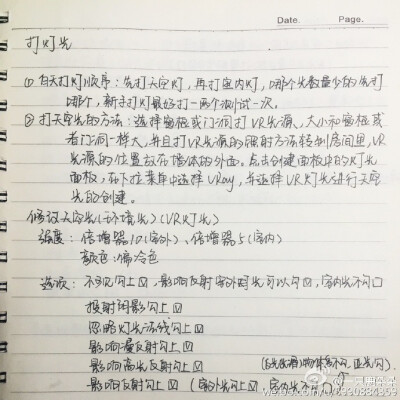 Date.    Page.
打灯光
① 白天打灯顺序：先打天空灯，再打室内灯，哪个光数量少的先打
哪个，新手打灯最好打一两个测试一次。
② 打天空光的方法：选择窗框或门洞打VR光源，大小和窗框或
者门洞一样大，并且打VR光源的照射方法转到房间里，VR
光源的位置放在墙体的外面。点击创建面板中的灯光
面板，在下拉菜单中选择VRay，并选择VR灯光进行天空
光的创建。
修改天空光（环境光）（VR灯光）
强度：倍增器10（室外）、倍增器5（室内）
颜色：偏冷色
选项：不可见勾上☑，影响反射室外灯光可以勾☑，室内光不勾☐
投射阴影勾上☑
忽略灯光法线勾上☑
影响漫反射勾上☑
影响高光反射勾上☑
影响反射勾上☑（室外光勾上☑，室内光不勾☐）